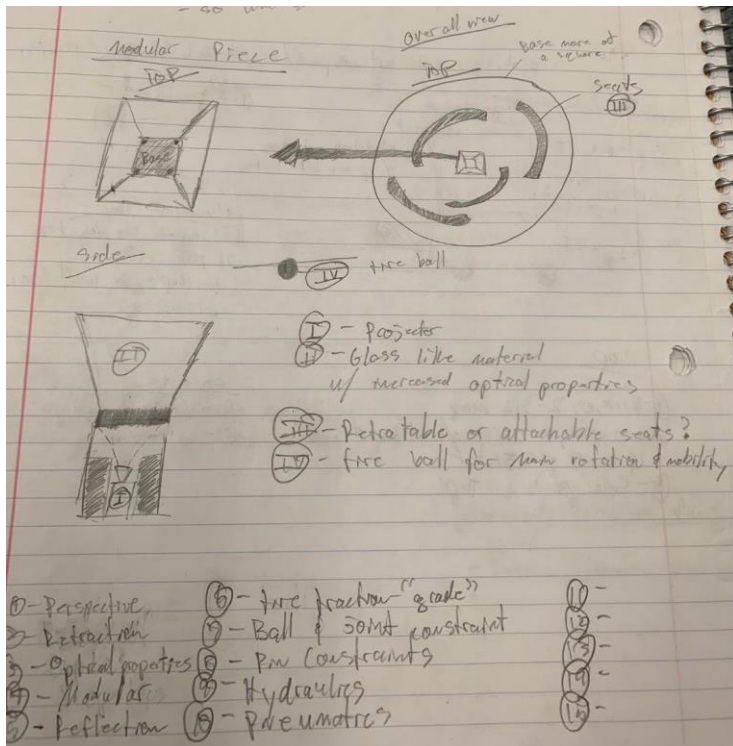 Modular Piece
Top
Base
Overall view
Top
Base more of
a square
seats
III
Side
IV tire ball
II
I
I - Projector
II - Glass like material
w/ increased optical properties
III - Retratable or attachable seats?
IV - tire ball for rotation & mobility
1 - Perspective
2 - Refraction
3 - Optical properties
4 - Modular
5 - Reflection
6 - tire traction "grade"
7 - Ball & Joint constraint
8 - Pin Constraints
9 - Hydraulics
10 - Pneumatics
11 -
12 -
13 -
14 -
15 -